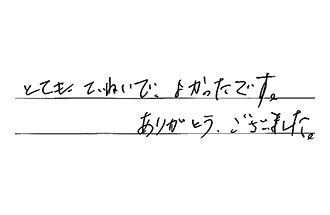 とてもていねいで、よかったです。
ありがとう、ございました。